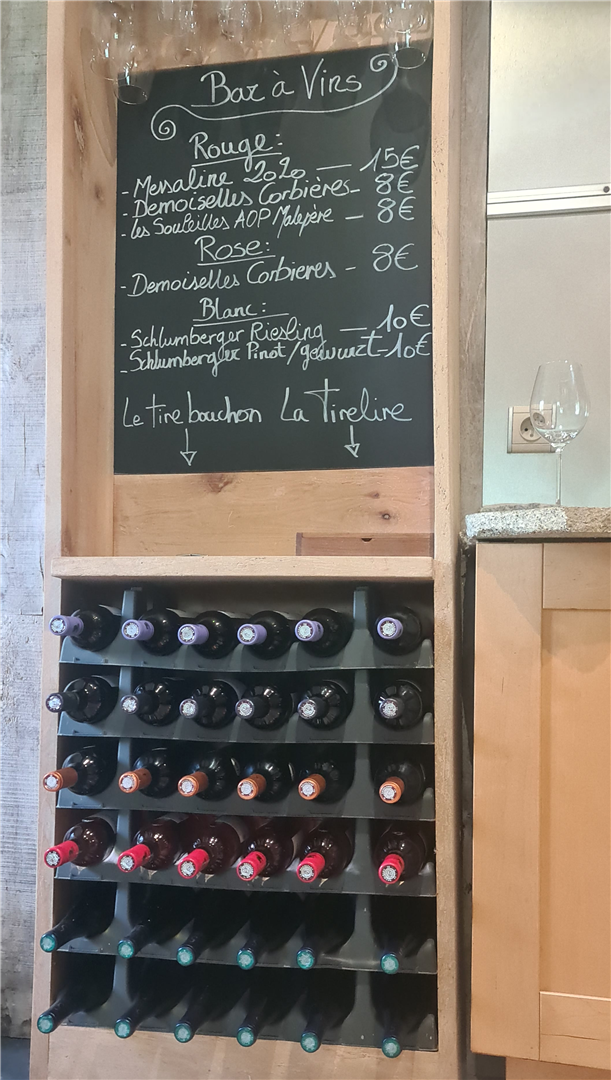 Bar à Vins
Rouge:
- Messaline 2020 — 15€
- Demoiselles Corbières - 8€
- les Souleilles AOP Malepère — 8€
Rose:
- Demoiselles Corbieres - 8€
Blanc:
- Schlumberger Riesling — 10€
- Schlumberger Pinot/gewurzt - 10€
Le tire bouchon La Tirelire